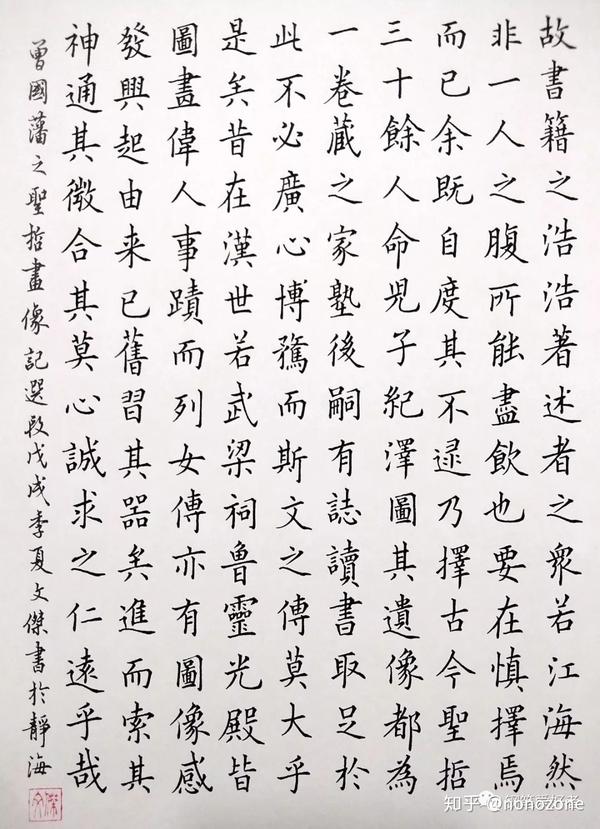 故書籍之浩浩著述者之衆若江海然
非一人之腹所能盡飲也要在慎擇焉
而已余既自度其不逮乃擇古今聖哲
三十餘人命兒子紀澤圖其遺像都為
一卷藏之家塾後嗣有誌讀書取足於
此不必廣心博騖而斯文之傳莫大乎
是矣昔在漢世若武梁祠魯靈光殿皆
圖畫偉人事蹟而列女傳亦有圖像感
發興起由来已舊習其器矣進而索其
神通其微合其莫心誠求之仁遠乎哉
曾國藩之聖哲畫像記選段戊戌季夏文傑書於靜海
知乎 @nonozone